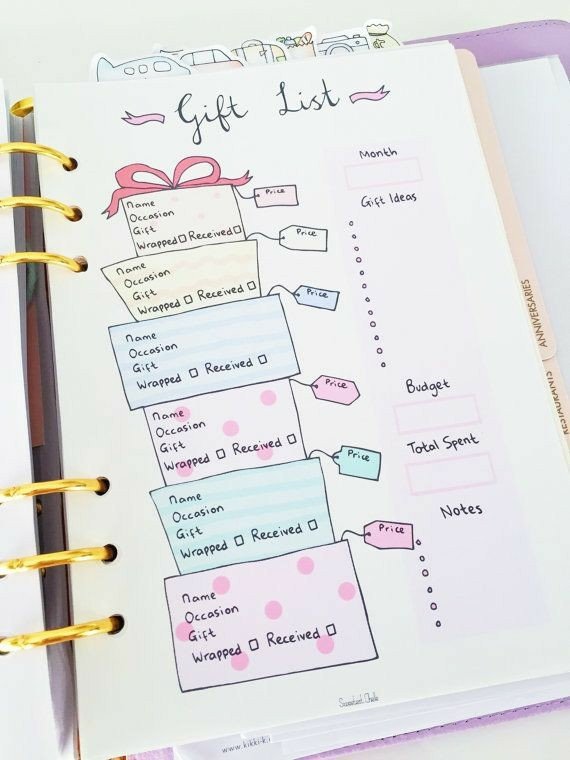 Gift List
Name
Occasion
Gift
Wrapped Received
Price
Name
Occasion
Gift
Wrapped Received
Price
Name
Occasion
Gift
Wrapped Received
Price
Name
Occasion
Gift
Wrapped Received
Price
Name
Occasion
Gift
Wrapped Received
Price
Name
Occasion
Gift
Wrapped Received
Price
Month
Gift Ideas
Budget
Total Spent
Notes
ANNIVERSARIES
RESTAURANTS
www.kikki-k